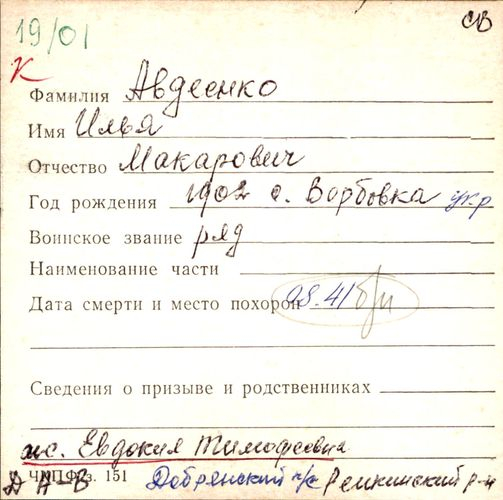 19/01
СВ
К
Фамилия Авдеенко
Имя Илья
Отчество Макарович
Год рождения 1902 с. Ворбовка укр
Воинское звание ряд
Наименование части
Дата смерти и место похорон 08.41 б/и
Сведения о призыве и родственниках
жс. Евдокия Тимофеевна
ЧППФ з. 151
Д А-В Добрянский с/с Репкинский р-н